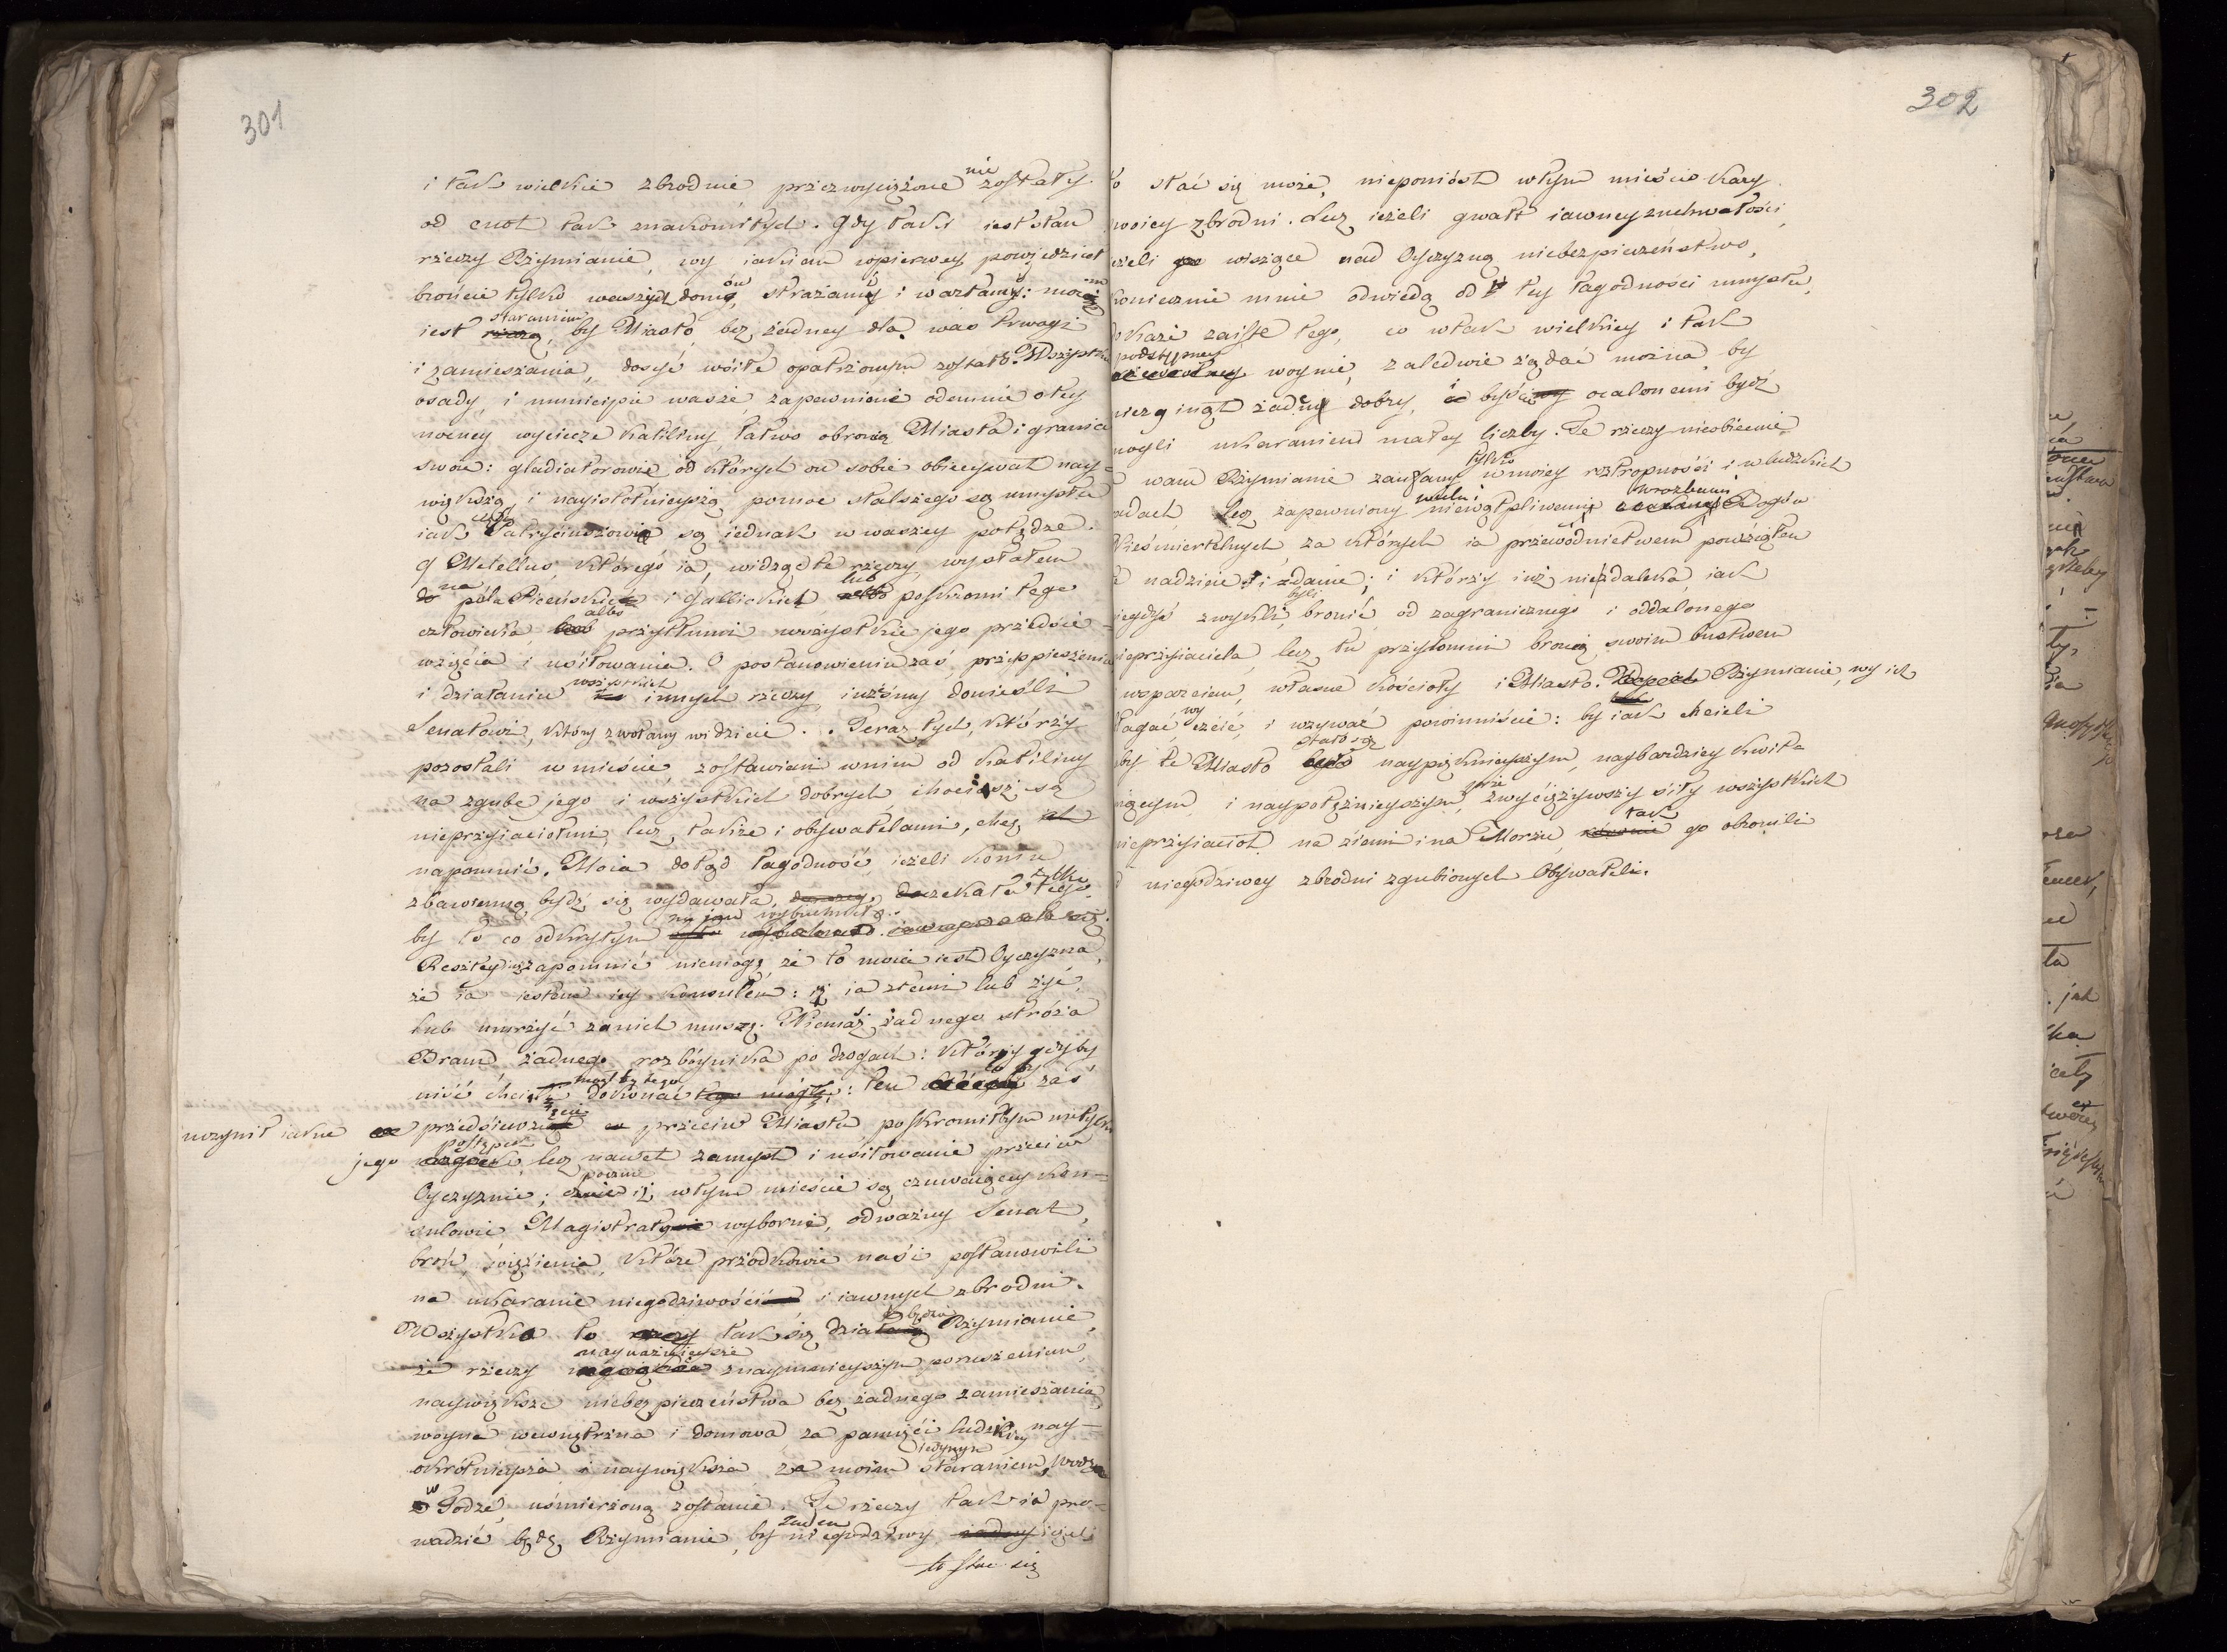 301
i tak wielkie zbrodnie przezwyciężone nie zostały
od cnot tak znakomitych. Gdy taki iest stan
rzeczy Rzymianie, wy iakiem wpierwey powiedział
brońcie tylko waszych domów, strażami i wartami: moim
iest staraniem, by Miasto, bez żadney dla was trwogi
i zamieszania, dosyć woiłe opatrzonym zostało. Wszystkie
osady, i municipia wasze, zapewnione odemnie o tey
nocney wycieczce Katiliny, łatwo obronią Miasta i granice
swoie: gladiatorowie, od których on sobie obiecywał nay-
większą, i nayistotnieyszą pomoc stalszego są umysłu
iak Patryciuszowie są iednak w waszey potędze.
Q Metellus, którego ia, widząc te rzeczy, wysłałem
na pola Piceńskie i Gallickie, lub poskromi tego
człowieka albo przytłumi wszystkie jego przedsie-
wzięcia i usiłowania. O postanowieniu zaś, przyspieszeniu
i działaniu wszystkich innych rzeczy, iużeśmy donieśli
Senatowi, który zwołany widzicie. Teraz tych, którzy
pozostali w mieście, zostawieni w nim od Katiliny
na zgubę jego i wszystkich dobrych chociasz są
nieprzyiaciołmi, lecz także i obywatelami, chcę
napomnieć. Moia dotąd łagodność, ieżeli komu
zbawienną bydź się wydawała, czekała tylko tego
by to co odkrytym wybuchnęło.
Resztey iuż zapomnieć niemogę że to moia iest Oyczyzna,
że ia iestem iey Konsulem: iż ia z temi lub żyć,
lub umrzyć za nich muszę. Niemasz żadnego stróża
Bram, żadnego rozbóynika po drogach: którzy gdyby
niść chcieli mogł by tego dokonać: ten zaś
uczynił iakie przedsiewzięcie przeciw Miastu, poskromiłbym nietylko
jego postępek, lecz nawet zamysł i usiłowanie przeciw
Oyczyznie; pozna iż w tym mieście są czuwaiący Kon-
sulowie, Magistraty wyborne, odważny Senat,
broń, więzienia, które przodkowie nasi postanowili
na ukaranie niegodziwości i iawnych zbrodni.
Wszystko to tak się działać będzie Rzymianie,
że rzeczy nayważnieysze z naymnieyszym poruszeniem,
naywiększe niebezpieczeństwa bez żadnego zamieszania
woyna wewnętrzna i domowa, za pamięci ludzkiey nay-
okrótnieysza i naywiększa za moim iedynym staraniem, Wodza
w Todze, uśmierzoną zostanie. Te rzeczy tak ia pro-
wadzić będę, Rzymianie, by żaden niegodziwy ieżeli
to stac się
302
to stać się może, nieponiósł w tym mieście kary
swoiey zbrodni. Lecz ieżeli gwałt iawney zuchwałości,
ieżeli wiszące nad Oyczyzną niebezpieczeństwo,
koniecznie mnie odwiedą od tey łagodności umysłu,
dokażę zaiste tego, co w tak wielkiey i tak
podstępney woynie, zaledwie żądać można by
niezginął żaden dobry, i byście ocalonemi bydź
mogli ukaraniem małey liczby. Te rzeczy nieobiecuię
wam Rzymianie zaufany tylko w moiey roztropności i w ludzkich
radach lecz zapewniony wielu i niewątpliwemi wrozbami Bogów
Nieśmiertelnych, za których ia przewodnictwem powziąłem
te nadzieie i zdanie; i którzy iuż nie zdaleka, iak
niegdyś zwykli byli bronić, od zagranicznego i oddalonego
nieprzyiaciela, lecz tu przytomni bronią swoim bustwem
i wsparciem, własne Kościoły i Miasto. Rzymianie, wy ich
błagać, czcić, i wzywać wy powinniście: by iak chcieli
by te Miasto stało się naypięknieyszym, naybardziey kwit-
nącym i naypotężnieyszym, zwyciężywszy siły wszystkich
nieprzyiaciół na ziemi i na Morzu, tak go obronili
od niegodziwey zbrodni zgubionych Obywateli.